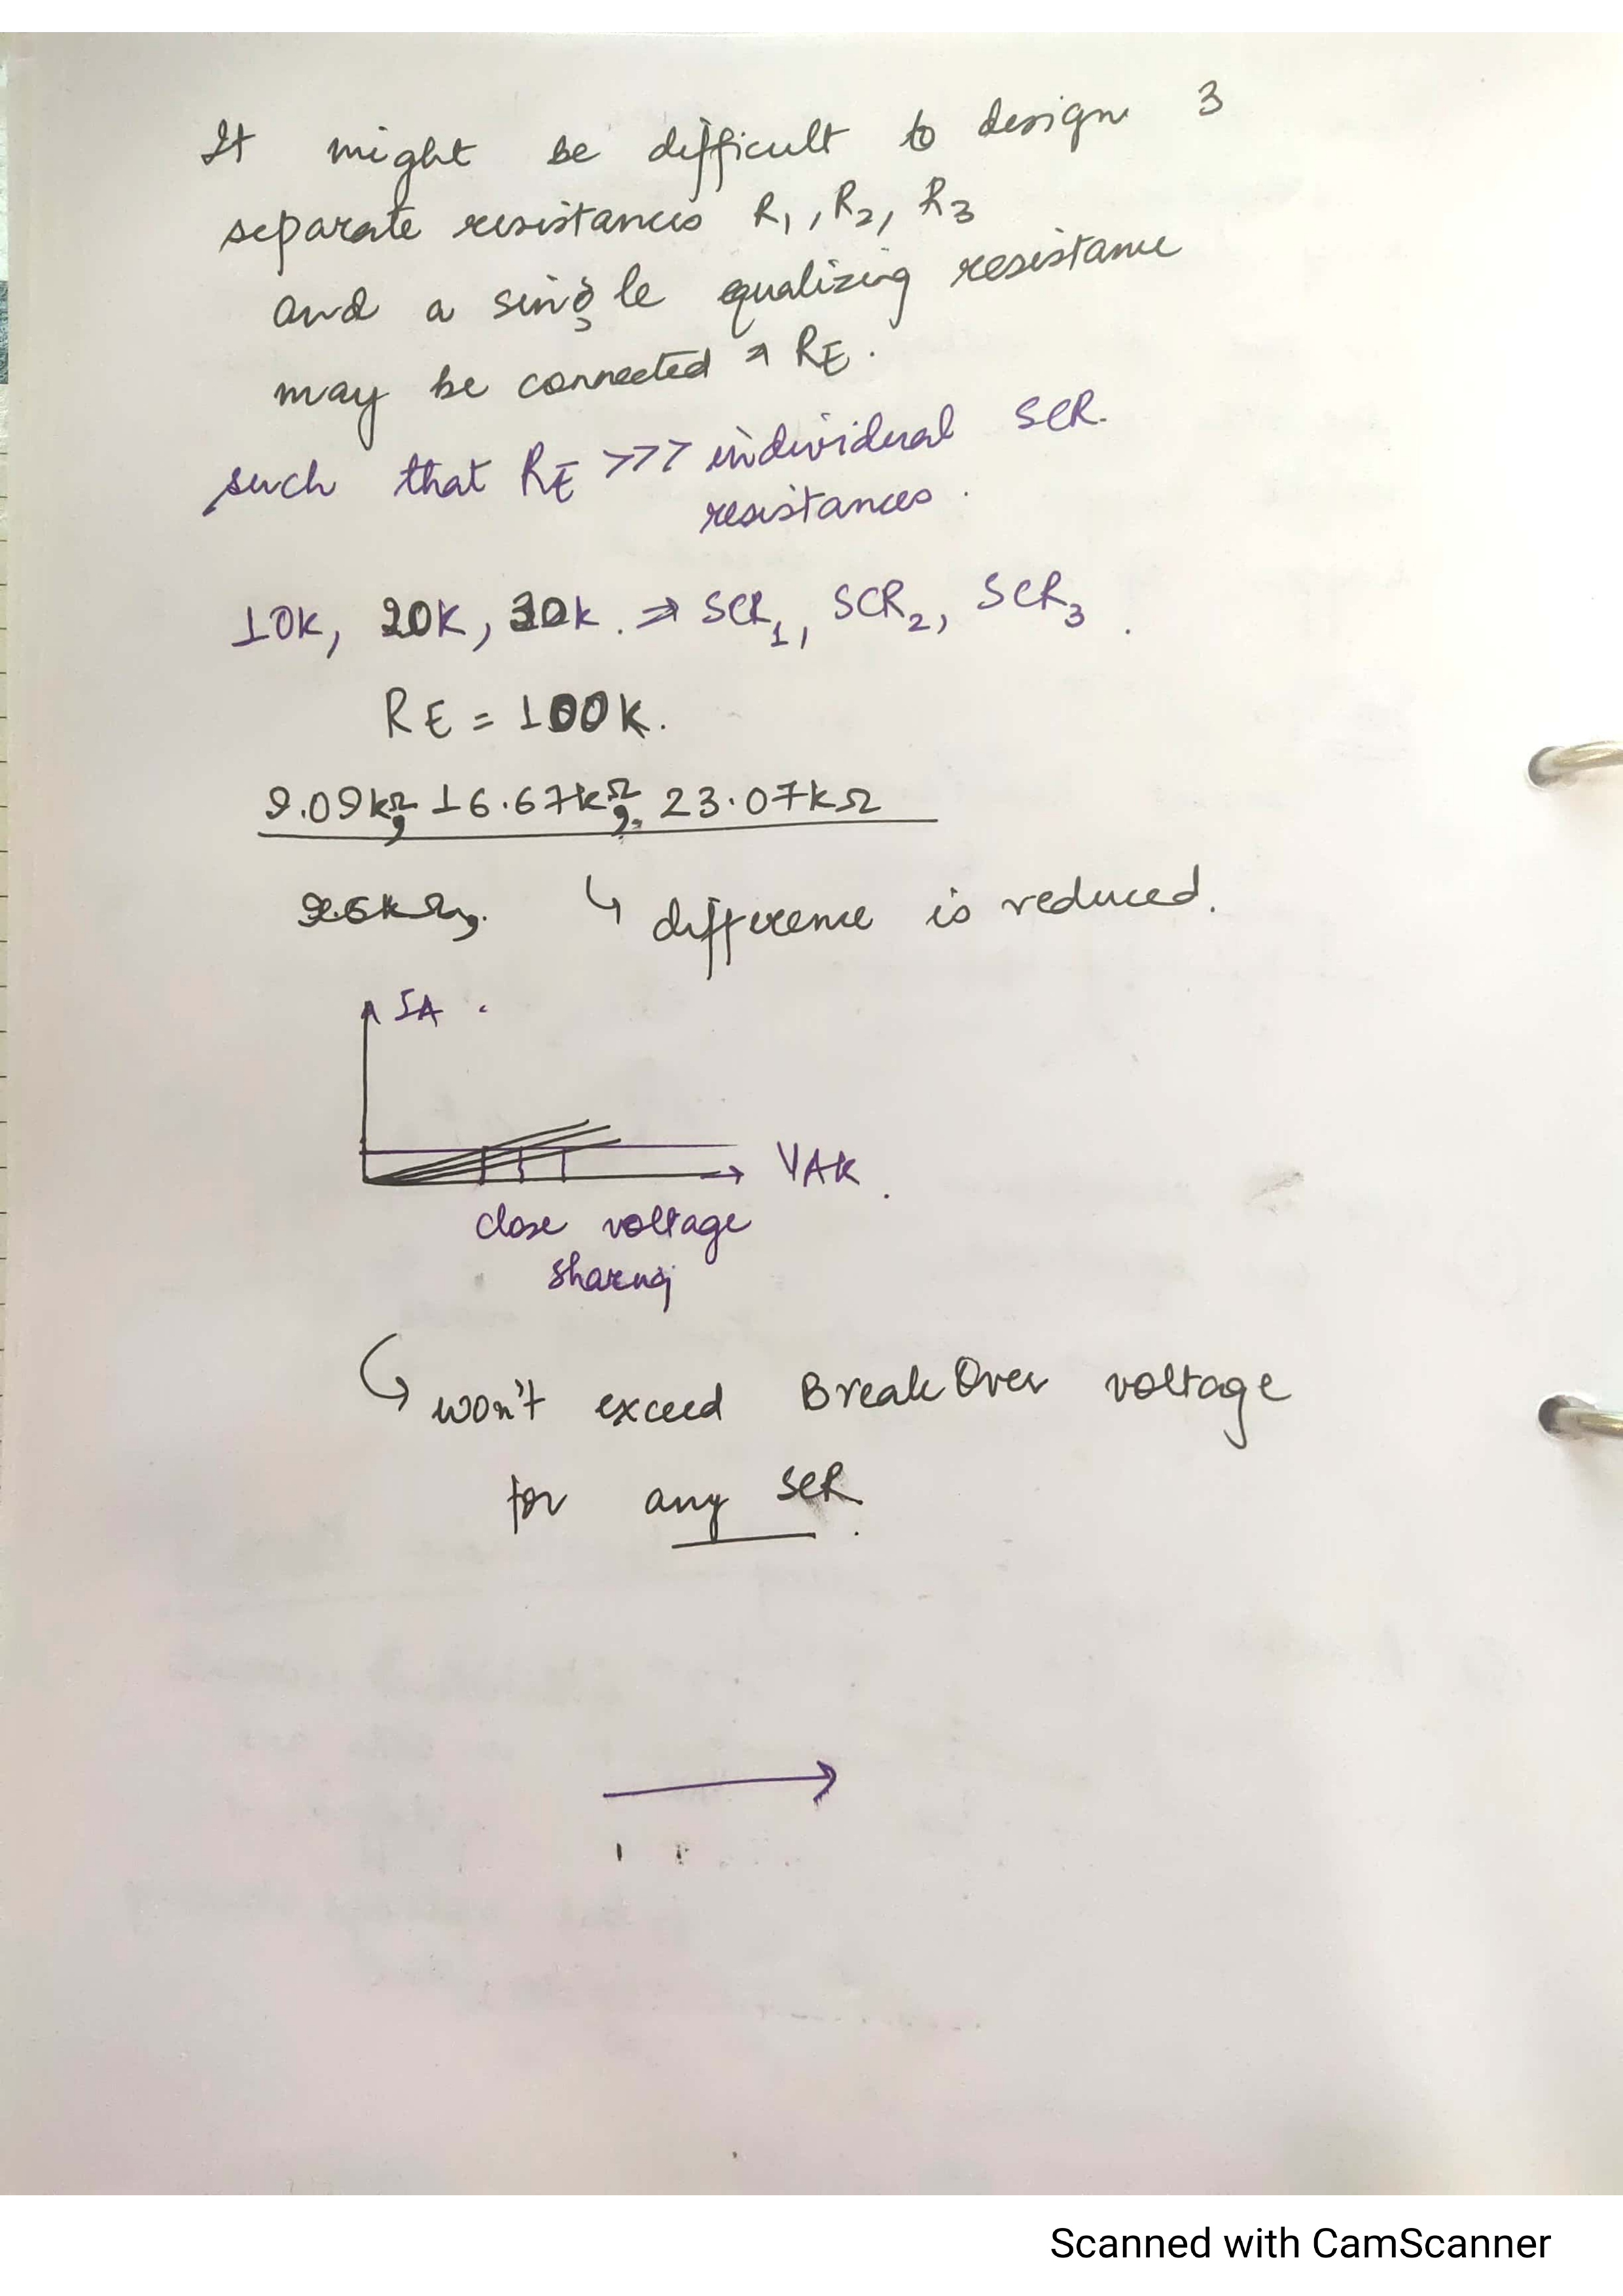 It might be difficult to design 3
separate resistances R1, R2, R3
and a single equalizing resistance
may be connected → RE.
such that RE >>> individual SCR
resistances.
10k, 20k, 30k. ⇒ SCR1, SCR2, SCR3.
RE = 100k.
9.09kΩ, 16.67kΩ, 23.07kΩ
↳ difference is reduced.
IA
VAK
close voltage
sharing
↳ won't exceed BreakOver voltage
for any SCR.
Scanned with CamScanner